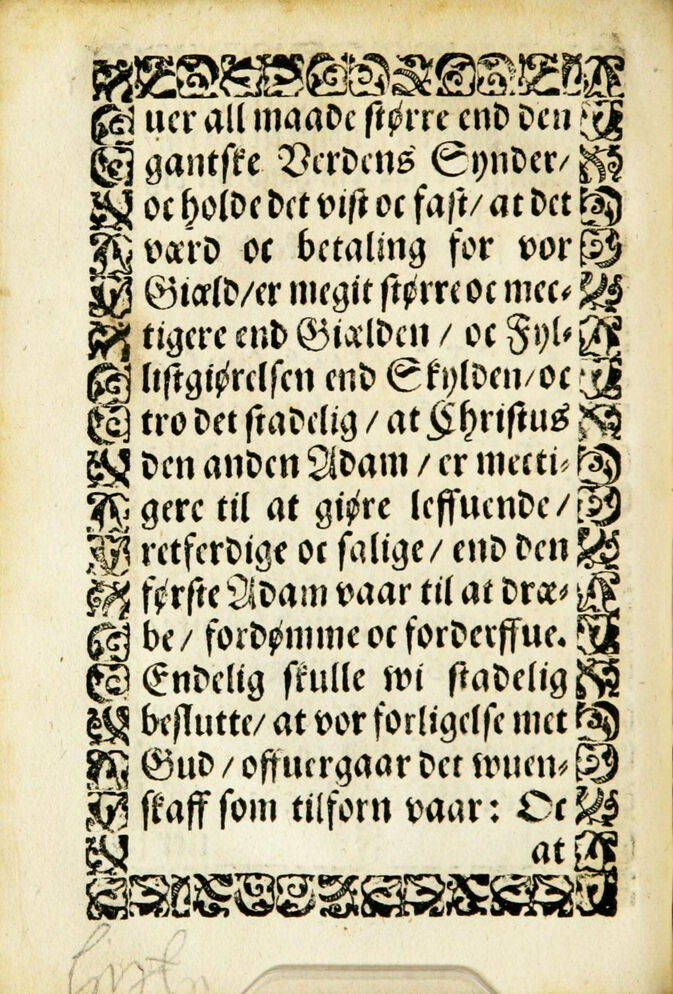 uer all maade større end den
gantske Verdens Synder/
oc holde det vist oc fast/ at det
værd oc betaling for vor
Giæld/er megit større oc mec⸗
tigere end Giælden / oc Fyl⸗
listgiørelsen end Skylden/oc
tro det stadelig / at Christus
den anden Adam / er mecti⸗
gere til at giøre leffuende/
retferdige oc salige/ end den
første Adam vaar til at dræ⸗
be/ fordømme oc forderffue.
Endelig skulle wi stadelig
beslutte/ at vor forligelse met
Gud / offuergaar det wuen⸗
skaff som tilforn vaar: Oc
at